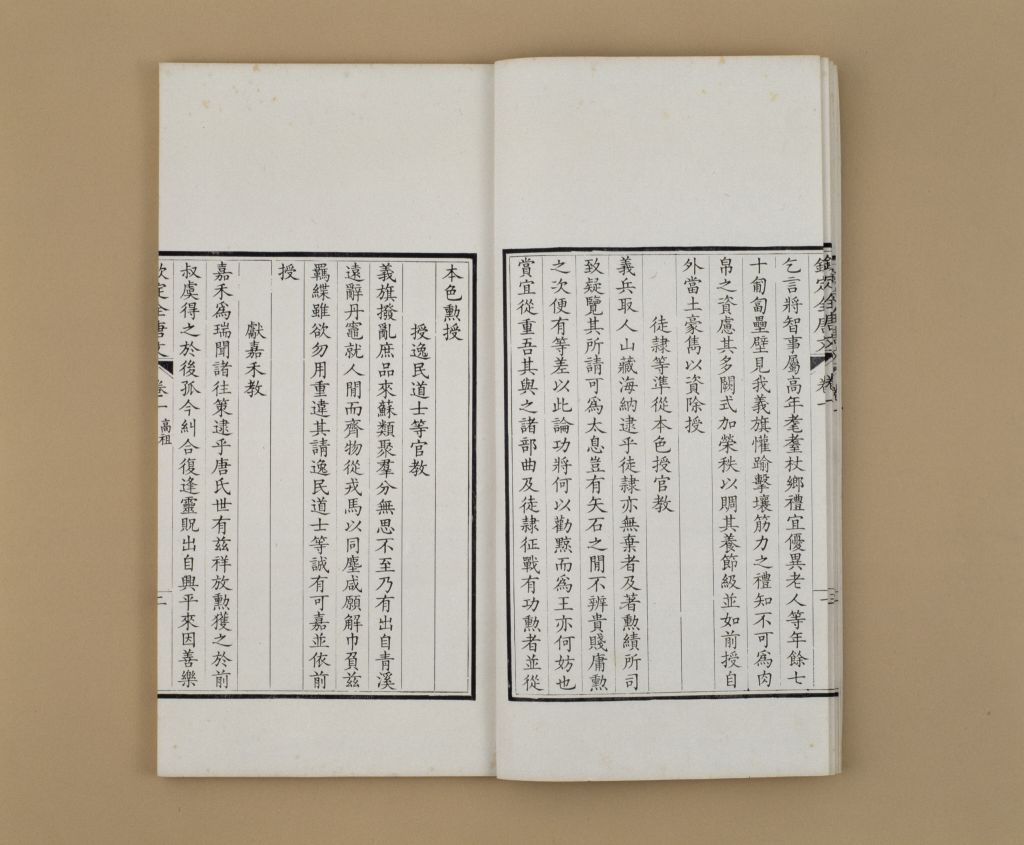 欽定全唐文 卷一
乞言將智事屬高年耄耋杖鄉禮宜優異老人等年餘七
十匍匐壘壁見我義旗懽踰擊壤筋力之禮知不可爲肉
帛之資慮其多闕式加榮秩以賙其養節級並如前授自
外當土豪雋以資除授
徒隸等準從本色授官教
義兵取人山藏海納逮乎徒隸亦無棄者及著勲績所司
致疑覽其所請可爲太息豈有矢石之閒不辨貴賤庸勲
之次便有等差以此論功將何以勸黥而爲王亦何妨也
賞宜從重吾其與之諸部曲及徒隸征戰有功勲者並從
本色勲授
授逸民道士等官教
義旗撥亂庶品來蘇類聚羣分無思不至乃有出自青溪
遠辭丹竈就人閒而齊物從戎馬以同塵咸願解巾負茲
羈緤雖欲勿用重違其請逸民道士等誠有可嘉並依前
授
獻嘉禾教
嘉禾爲瑞聞諸往策逮乎唐氏世有茲祥放勲獲之於前
叔虞得之於後孤今糾合復逢靈貺出自興平來因善樂
欽定全唐文 卷一 高祖 二